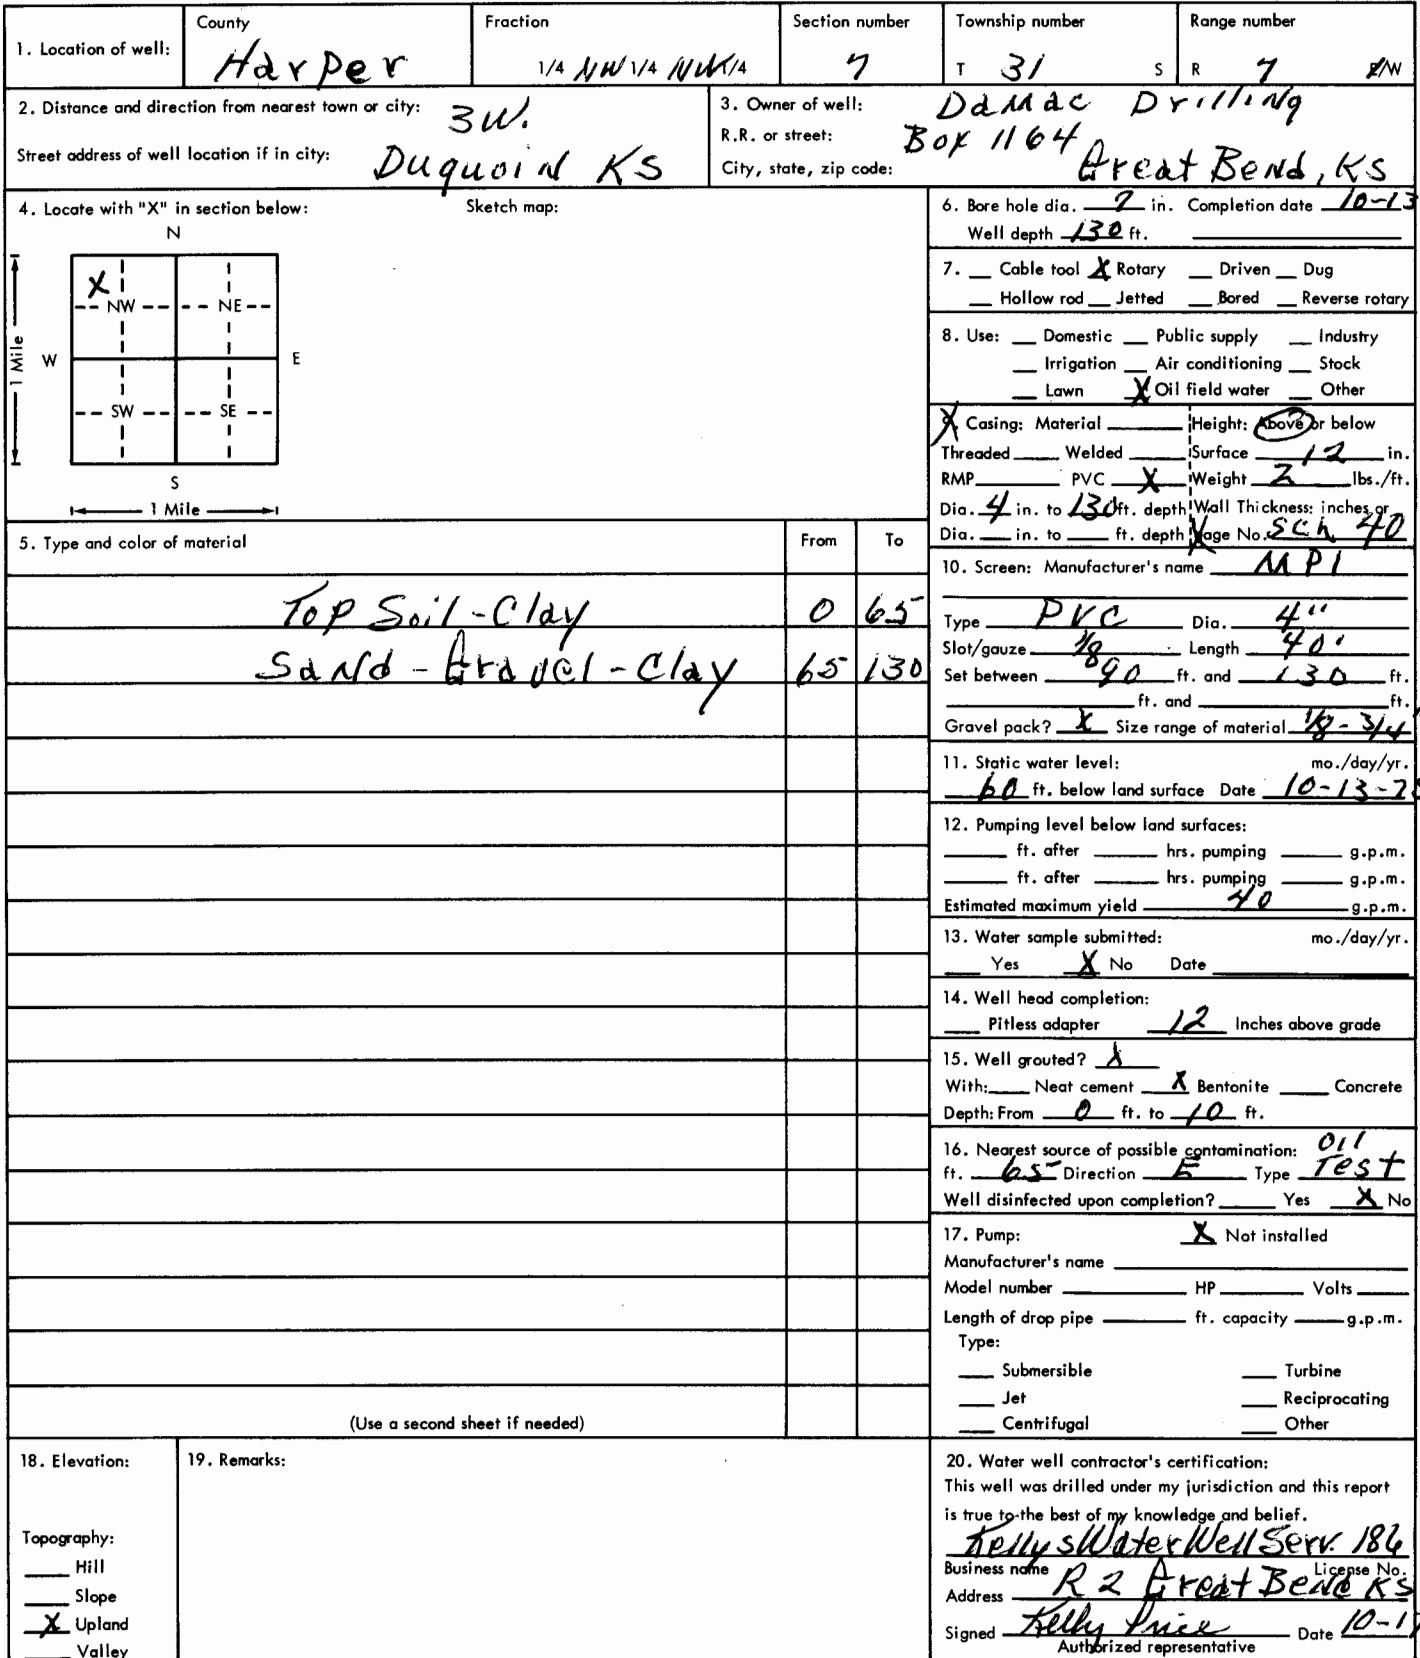 1. Location of well: County Harper Fraction 1/4 NW 1/4 NW 1/4 Section number 7 Township number T 31 S Range number R 7 E/W
2. Distance and direction from nearest town or city: 3W.
Street address of well location if in city: Duquoin KS
3. Owner of well: Damac Drilling
R.R. or street: Box 1164
City, state, zip code: Great Bend, KS
4. Locate with "X" in section below: Sketch map:
N
X
NW NE
W E
1 Mile
SW SE
S
1 Mile
5. Type and color of material From To
Top Soil - Clay 0 65
Sand - Gravel - Clay 65 130
(Use a second sheet if needed)
6. Bore hole dia. 7 in. Completion date 10-13
Well depth 130 ft.
7. __ Cable tool X Rotary __ Driven __ Dug
__ Hollow rod __ Jetted __ Bored __ Reverse rotary
8. Use: __ Domestic __ Public supply __ Industry
__ Irrigation __ Air conditioning __ Stock
__ Lawn X Oil field water __ Other
9. Casing: Material ____ Height: Above or below
Threaded ____ Welded ____ Surface 12 in.
RMP ____ PVC X Weight 2 lbs./ft.
Dia. 4 in. to 130 ft. depth Wall Thickness: inches or
Dia. __ in. to __ ft. depth gage No. Sch 40
10. Screen: Manufacturer's name MPI
Type PVC Dia. 4"
Slot/gauze 1/8 Length 40'
Set between 90 ft. and 130 ft.
____ ft. and ____ ft.
Gravel pack? X Size range of material 1/8 - 3/4
11. Static water level: mo./day/yr.
60 ft. below land surface Date 10-13-
12. Pumping level below land surfaces:
____ ft. after ____ hrs. pumping ____ g.p.m.
____ ft. after ____ hrs. pumping ____ g.p.m.
Estimated maximum yield 40 g.p.m.
13. Water sample submitted: mo./day/yr.
__ Yes X No Date ____
14. Well head completion:
__ Pitless adapter 12 Inches above grade
15. Well grouted? X
With: __ Neat cement X Bentonite __ Concrete
Depth: From 0 ft. to 10 ft.
16. Nearest source of possible contamination: Oil
ft. 65 Direction E Type Test
Well disinfected upon completion? __ Yes X No
17. Pump: X Not installed
Manufacturer's name ____
Model number ____ HP ____ Volts ____
Length of drop pipe ____ ft. capacity ____ g.p.m.
Type:
__ Submersible __ Turbine
__ Jet __ Reciprocating
__ Centrifugal __ Other
18. Elevation:
Topography:
__ Hill
__ Slope
X Upland
__ Valley
19. Remarks:
20. Water well contractor's certification:
This well was drilled under my jurisdiction and this report
is true to the best of my knowledge and belief.
Kellys Water Well Serv. 186
Business name License No.
Address R 2 Great Bend KS
Signed Kelly Price Date 10-1
Authorized representative